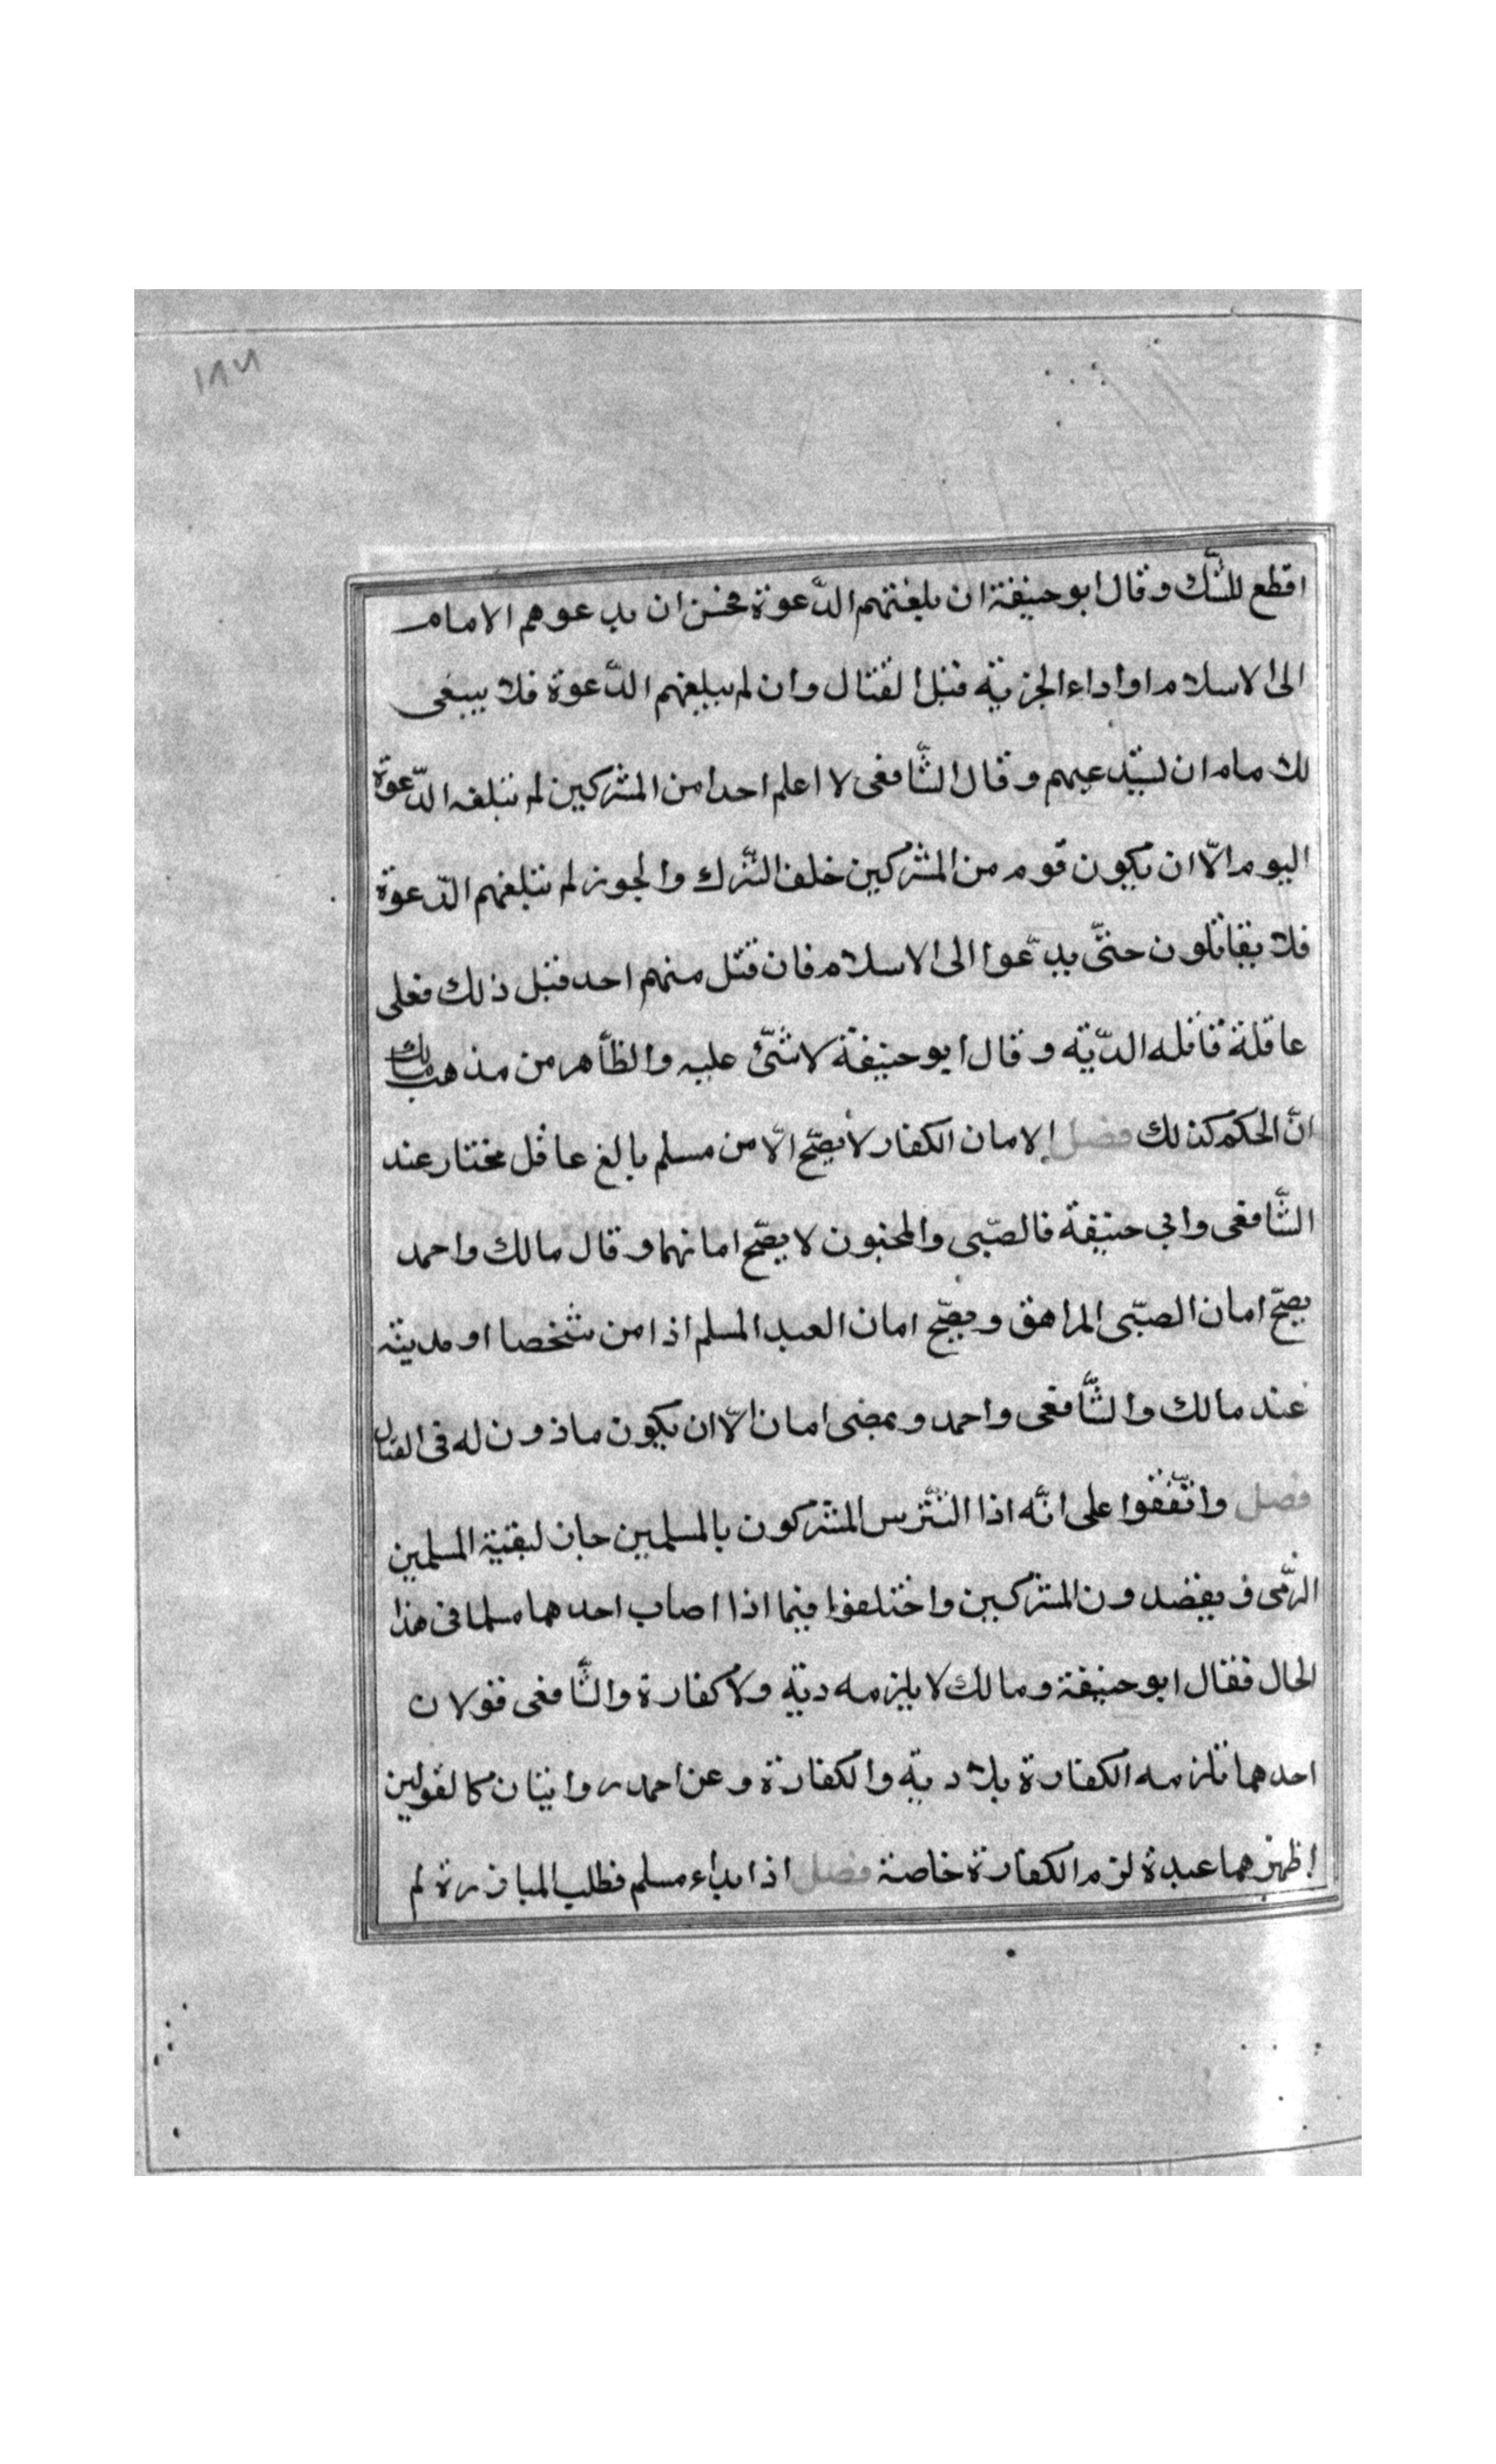 ١٨٦
اقطع للشّك وقال ابو حنيفة ان بلغتهم الدّعوة فحسن ان يدعوهم الامام
الى الاسلام او اداء الجزية قبل القتال وان لم يبلغهم الدّعوة فلا ينبغى
للامام ان يبتدعيهم وقال الشّافعى لا اعلم احدا من المشركين لم تبلغه الدّعوة
اليوم الّا ان يكون قوم من المشركين خلف التّرك والجوز لم تبلغهم الدّعوة
فلا يقاتلون حتّى يدعّوا الى الاسلام فان قتل منهم احد قبل ذلك فعلى
عاقلة قاتله الدّية وقال ابو حنيفة لا شئ عليه والظّاهر من مذهب مالك
انّ الحكم كذلك فصل الامان الكفار لا يصّح الّا من مسلم بالغ عاقل مختار عند
الشّافعى وابي حنيفة فالصّبى والمجنون لا يصّح امانهما وقال مالك واحمد
يصّح امان الصبّى المراهق ويصّح امان العبد المسلم اذا من شخصا او مدينة
عند مالك والشّافعى واحمد ويمضى امان الّا ان يكون ماذون له فى القتال
فصل واتّفقوا على انّه اذا التّترس المشركون بالمسلمين جاز لبقية المسلمين
الرّمى ف يقضدون المشركين واختلفوا فيما اذا اصاب احدهما مسلما فى هذا
الحال فقال ابو حنيفة ومالك لا يلزمه دية ولا كفارة والشّافعى قولان
احدهما تلزمه الكفارة بلا دية والكفارة وعن احمد روايتان كالقولين
اظهرهما عبدة لزم الكفارة خاصة فصل اذا بداء مسلم فطلب المبارزة لم